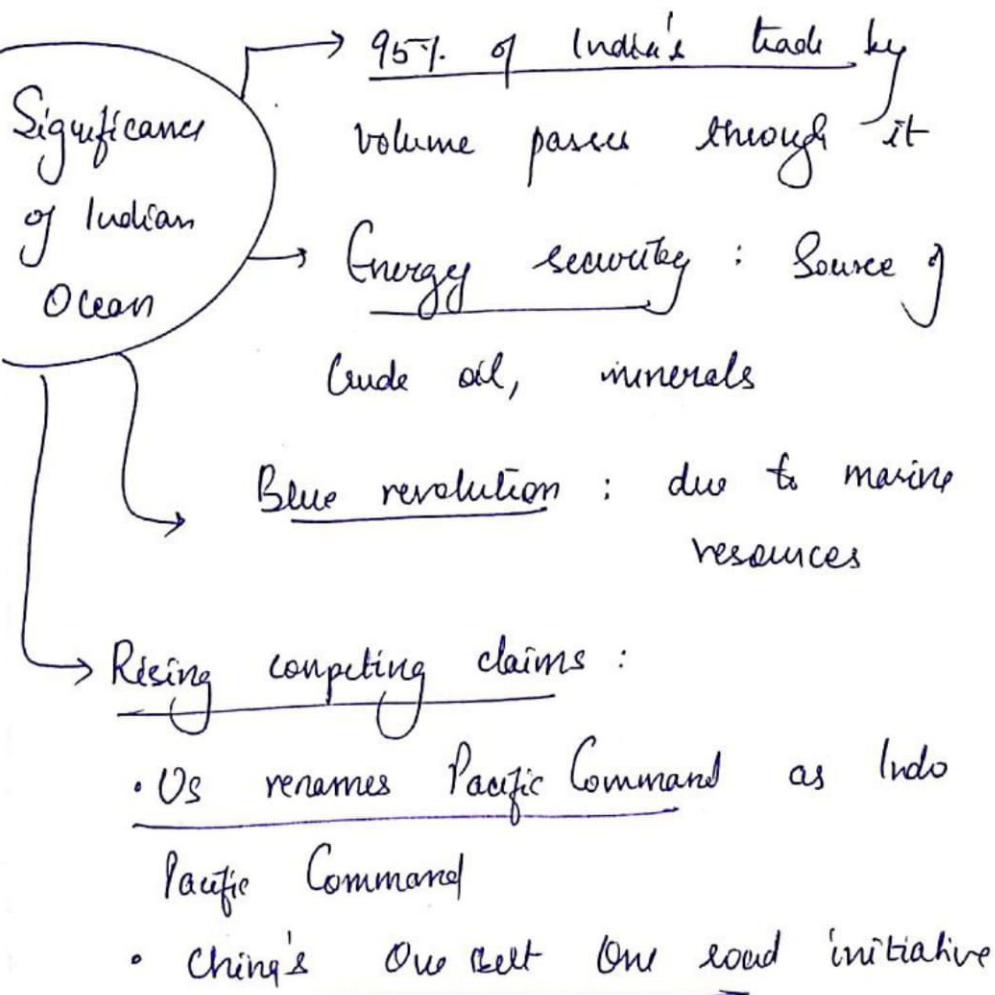 Significance
of Indian
Ocean
95% of India's trade by
volume passes through it
Energy security : Source of
Crude oil, minerals
Blue revolution : due to marine
resources
Rising competing claims :
• US renames Pacific Command as Indo
Pacific Command
• China's One Belt One road initiative